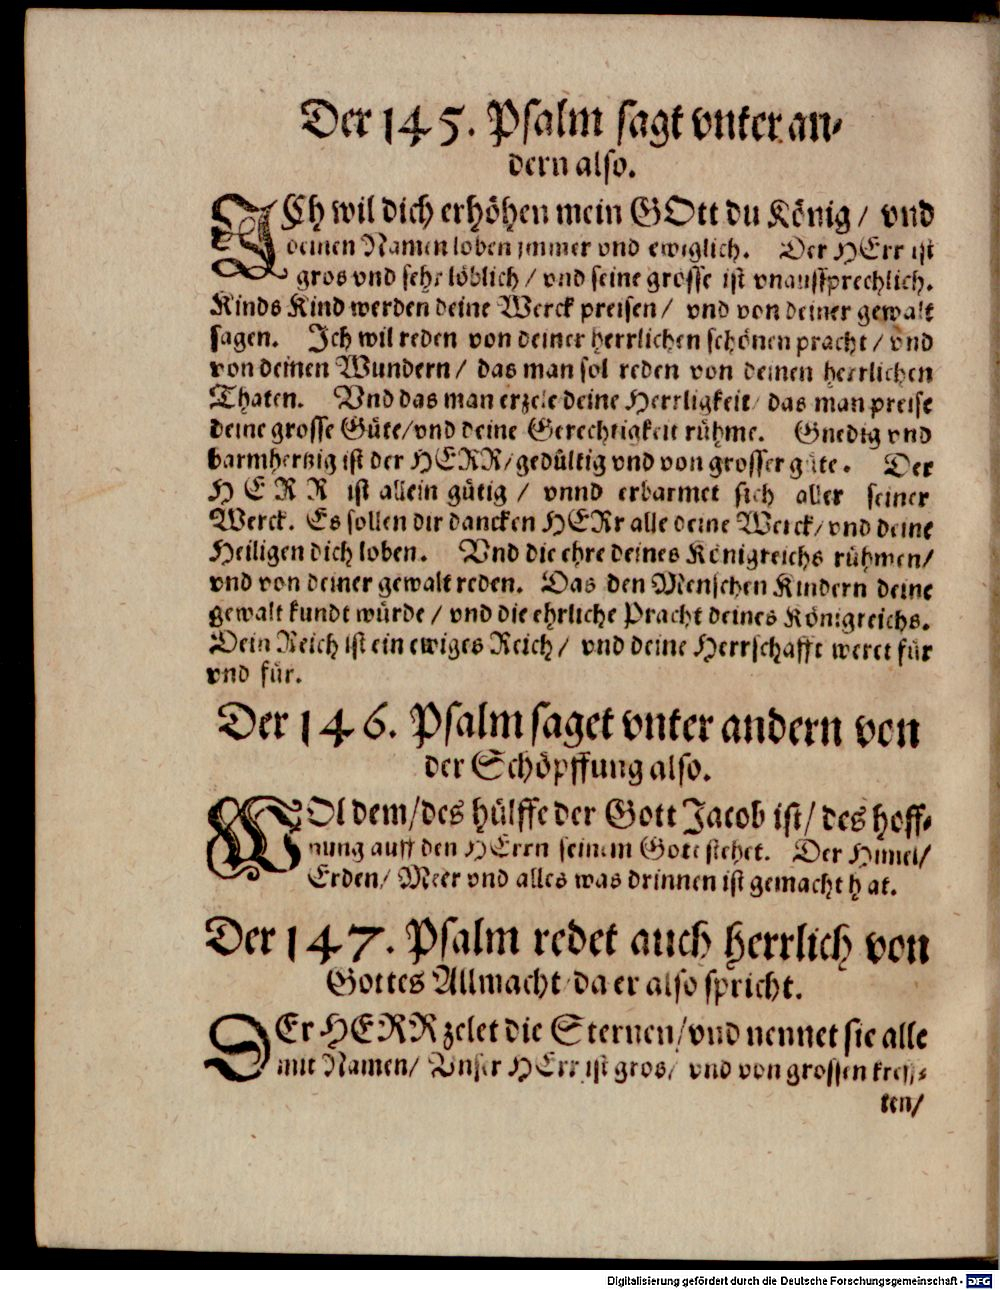 Der 145. Psalm sagt vnter an-
dern also.
ICh wil dich erhöhen mein GOtt du König / vnd
deinen Namen loben jmmer vnd ewiglich. Der HErr ist
gros vnd sehr löblich / vnd seine grösse ist vnaussprechlich.
Kinds Kind werden deine Werck preisen / vnd von deiner gewalt
sagen. Ich wil reden von deiner herrlichen schönen pracht / vnd
von deinen Wundern / das man sol reden von deinen herrlichen
Thaten. Vnd das man erzele deine Herrligkeit / das man preise
deine grosse Güte / vnd deine Gerechtigkeit rühme. Gnedig vnd
barmhertzig ist der HERR / gedültig vnd von grosser güte. Der
HERR ist allein gütig / vnnd erbarmet sich aller seiner
Werck. Es sollen dir dancken HERr alle deine Werck / vnd deine
Heiligen dich loben. Vnd die ehre deines Königreichs rühmen /
vnd von deiner gewalt reden. Das den Menschen Kindern deine
gewalt kundt würde / vnd die ehrliche Pracht deines Königreichs.
Dein Reich ist ein ewiges Reich / vnd deine Herrschafft weret für
vnd für.
Der 146. Psalm saget vnter andern von
der Schöpffung also.
WOl dem / des hülffe der Gott Jacob ist / des hoff-
nung auff den HErrn seinem Gott stehet. Der Himel /
Erden / Meer vnd alles was drinnen ist gemacht hat.
Der 147. Psalm redet auch herrlich von
Gottes Allmacht / da er also spricht.
DEr HERR zelet die Sternen / vnd nennet sie alle
mit Namen / Vnser HErr ist gros / vnd von grossen kreff-
ten /
Digitalisierung gefördert durch die Deutsche Forschungsgemeinschaft - DFG